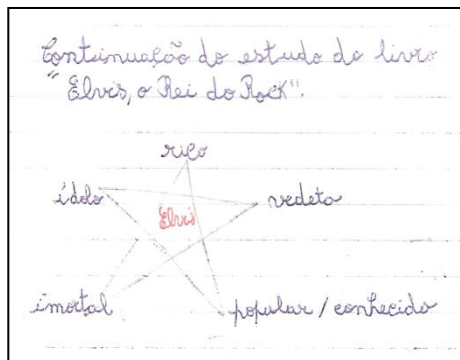 Continuação do estudo do livro
"Elvis, o Rei do Rock".
rico
ídolo
vedeta
Elvis
imortal
popular / conhecido